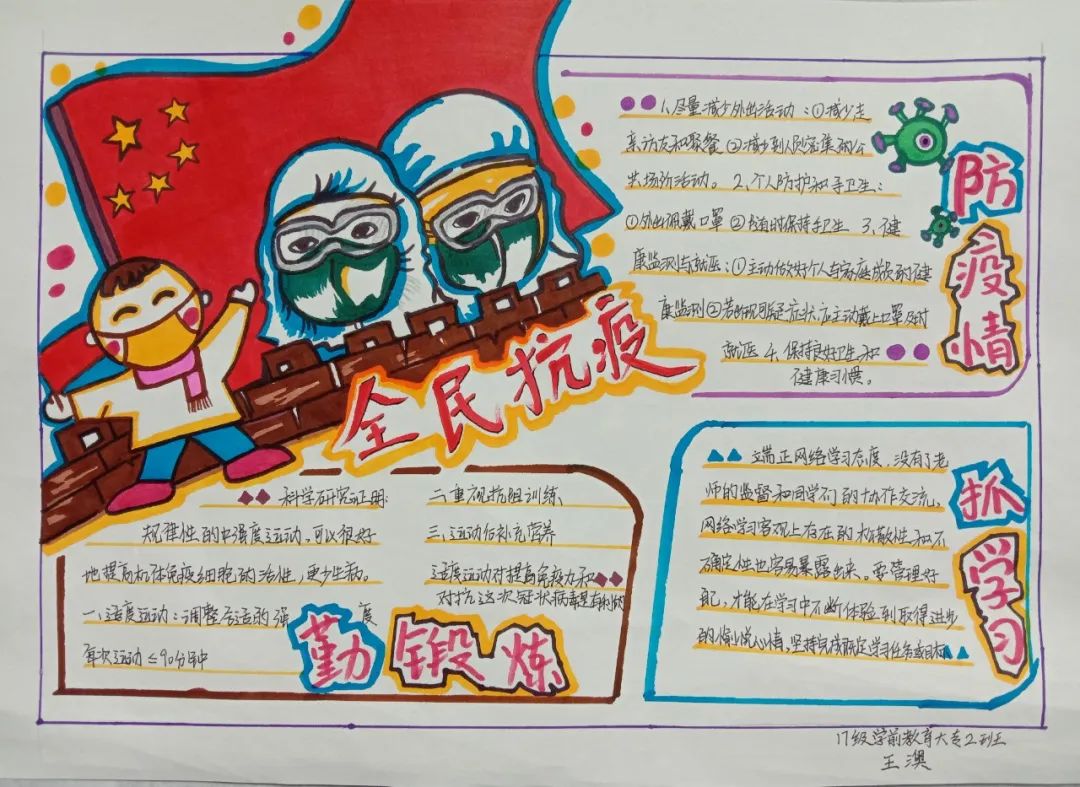 全民抗疫
1、尽量减少外出活动：①减少走
亲访友和聚餐②减少到人员密集的公
共场所活动。2、个人防护和手卫生：
①外出佩戴口罩②随时保持手卫生 3、健
康监测与就医：①主动做好个人与家庭成员的健
康监测②若出现可疑症状应主动戴上口罩及时
就医 4、保持良好卫生和
健康习惯。
防
疫
情
科学研究证明：
规律性的中强度运动，可以很好
地提高机体免疫细胞的活性，更少生病。
一、适度运动：调整合适的强度
每次运动≤90分钟
二、重视抗阻训练
三、运动后补充营养
适度运动对提高免疫力和
对抗这次冠状病毒是有利的
勤锻炼
端正网络学习态度，没有了老
师的监督和同学们的协作交流，
网络学习客观上存在的松散性和不
确定性也容易暴露出来。要管理好
自己，才能在学习中不断体验到取得进步
的愉悦心情，坚持完成既定学习任务或目标
抓
学
习
17级学前教育大专2班
王澳